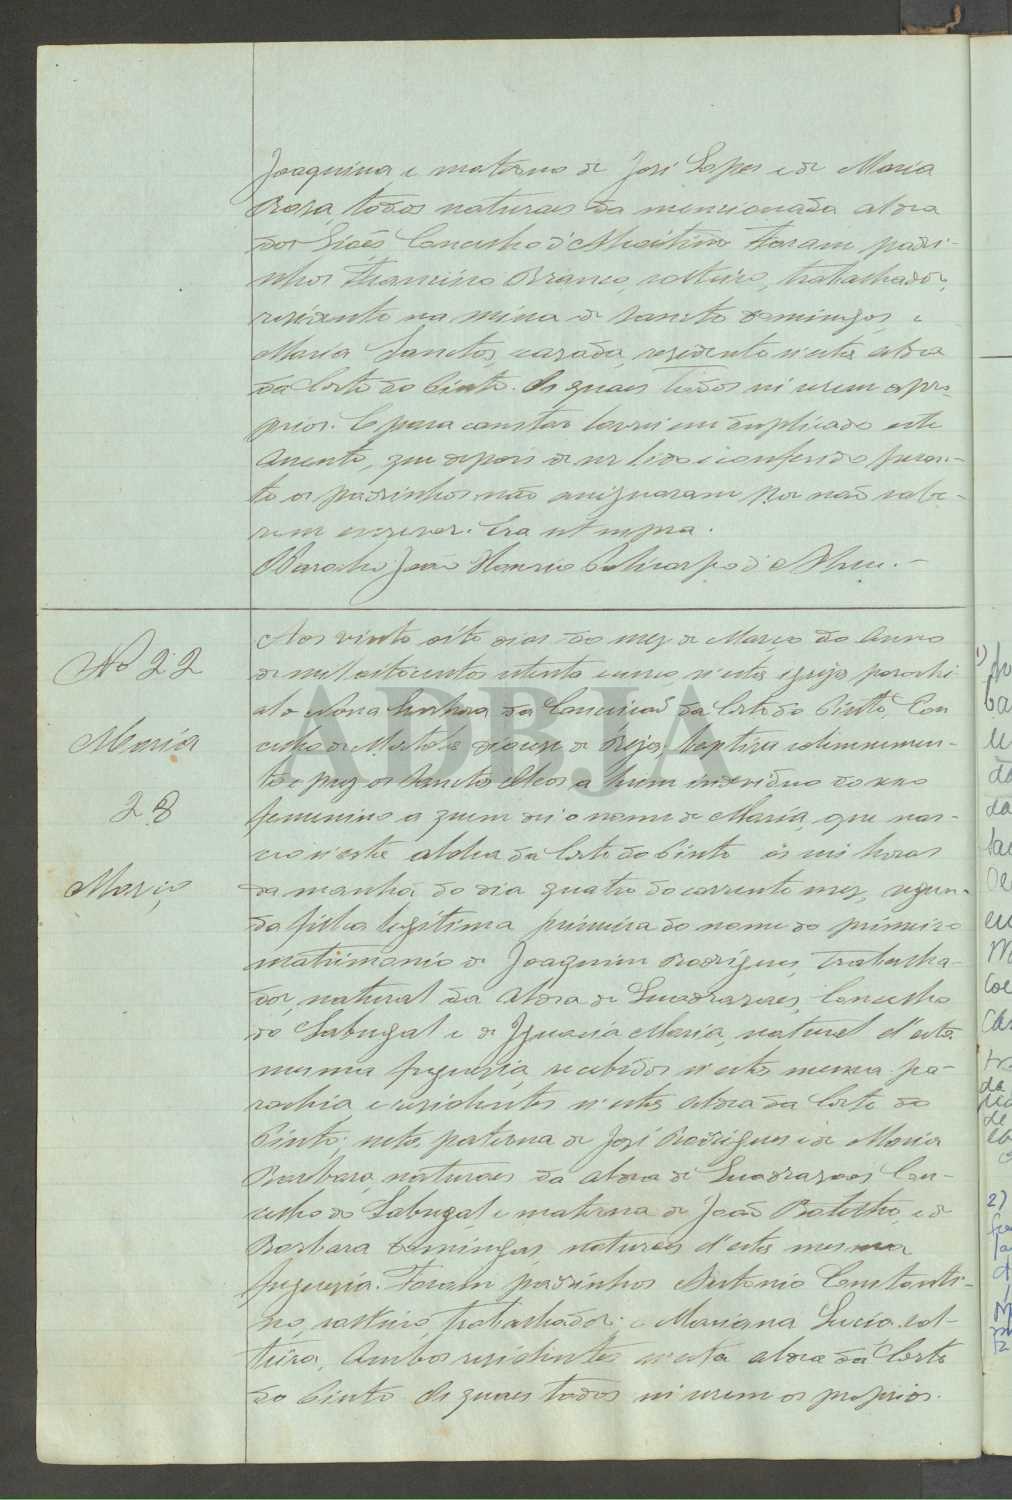 Joaquina e materno de José Lopes e de Maria
Rosa, todos naturaes da mencionada aldea
dos Concelho d'Alcoitim Foram padri-
nhos Francisco Branco, solteiro, trabalhador,
residente na mina de Sancto Domingos, e
Maria Sanctos, casada, residente n'esta aldea
da Corte do Pinto. Os quaes todos sei serem os pro-
prios. E para constar lavrei em duplicado este
Assento, que depois de ser lido e conferido peran-
te os padrinhos não assignaram por não sabe-
rem escrever. Era ut supra.
O Parocho João d'
No 22
Maria
28
Março
Aos vinte oito dias do mez de Março do Anno
de mil oitocentos oitenta e cinco n'esta igreja parochi-
al de Nossa Senhora da Conceicaõ da Corte do Pinto, Con
celho de Mertola diocese de Beja, baptisei solemnemen-
te e puz os Sanctos Oleos a hum individuo do sexo
femenino a quem dei o nome de Maria, que nas-
ceo n'esta aldea da Corte do Pinto ás seis horas
da manhã do dia quatro do corrente mez, segun-
da filha legitima primeira do nome do primeiro
matrimonio de Joaquim Rodrigues, trabalha-
dor, natural da aldea de Quadrazaes, Concelho
do Sabugal e de Ignacia Maria, natural d'esta
mesma freguesia, recebidos n'esta mesma pa-
rochia, e residentes n'esta aldea da Corte do
Pinto; neta paterna de José Rodrigues e de Maria
Barbara, naturaes da aldea de Quadrazaes Con-
celho do Sabugal, e materna de João Botelho, e de
Barbara Domingas, naturaes d'esta mesma
freguesia. Foram padrinhos Antonio Constanti-
no, solteiro, trabalhador; e Mariana Lucia sol-
teira, Ambos residentes n'esta aldea da Corte
do Pinto Os quaes todos sei serem os proprios.
ADBJA
1)
2)